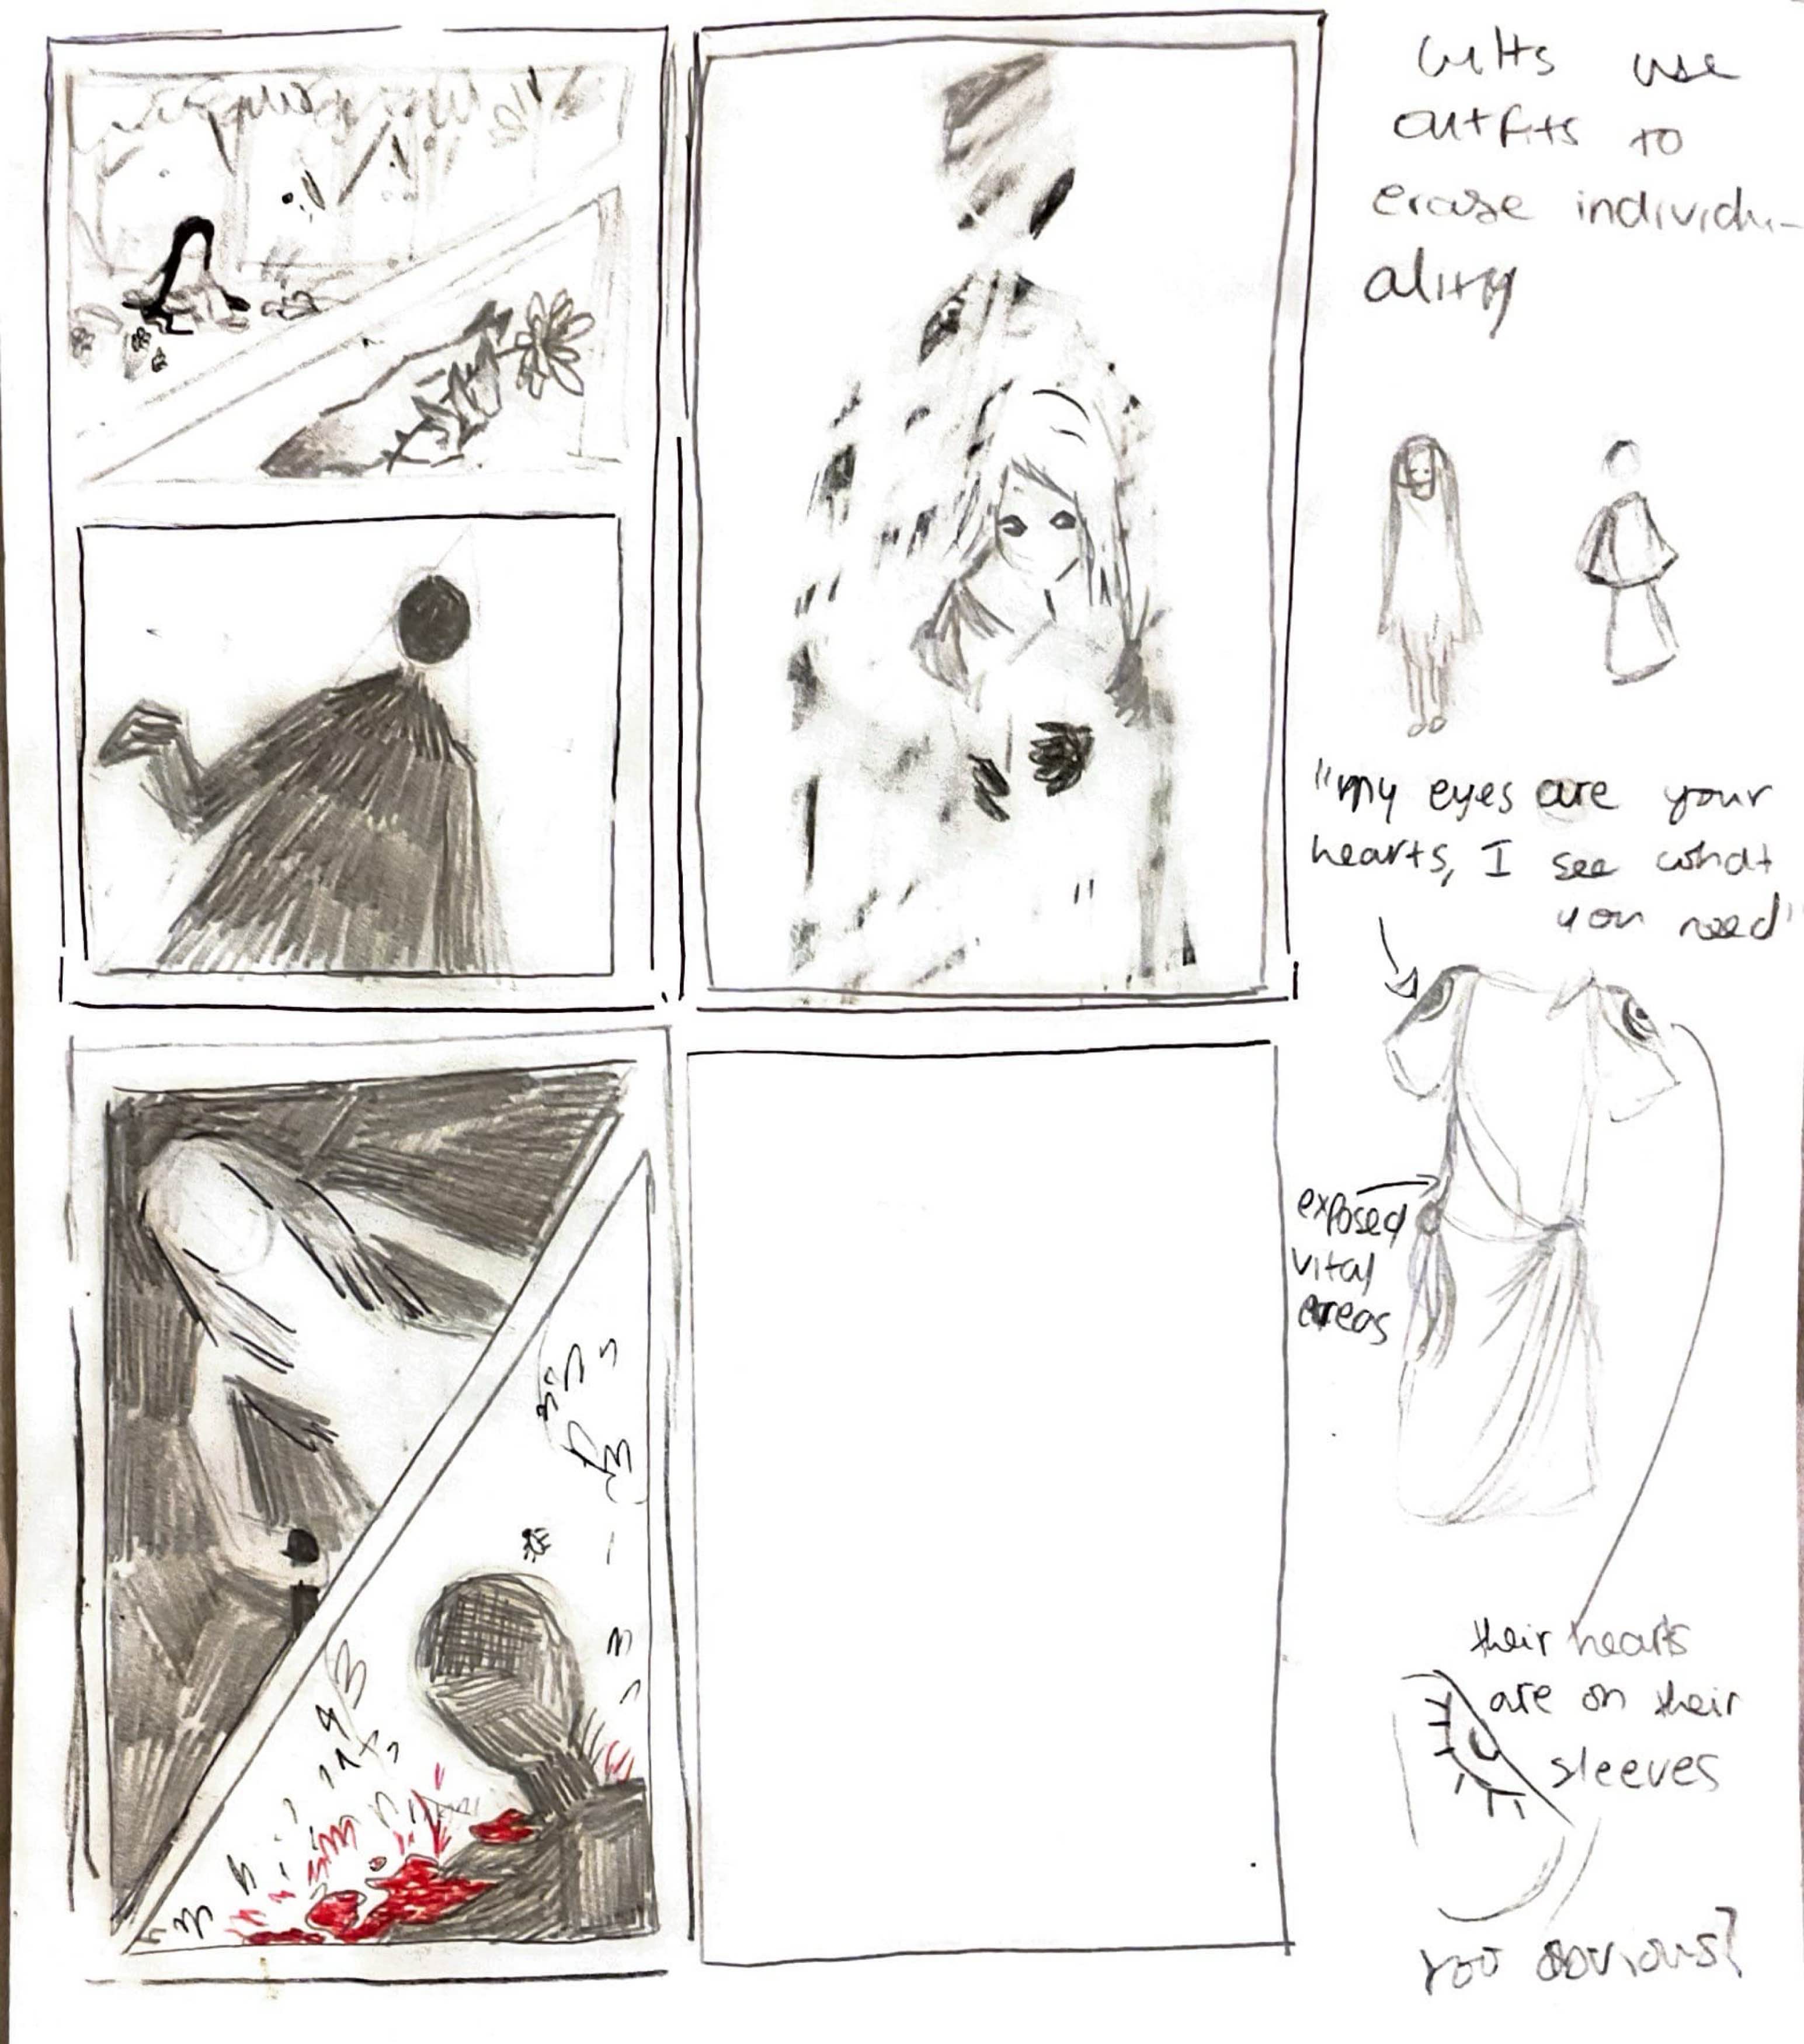 cults use
outfits to
erase individu-
ality
"my eyes are your
hearts, I see what
you need"
exposed
vital
areas
their hearts
are on their
sleeves
too obvious?